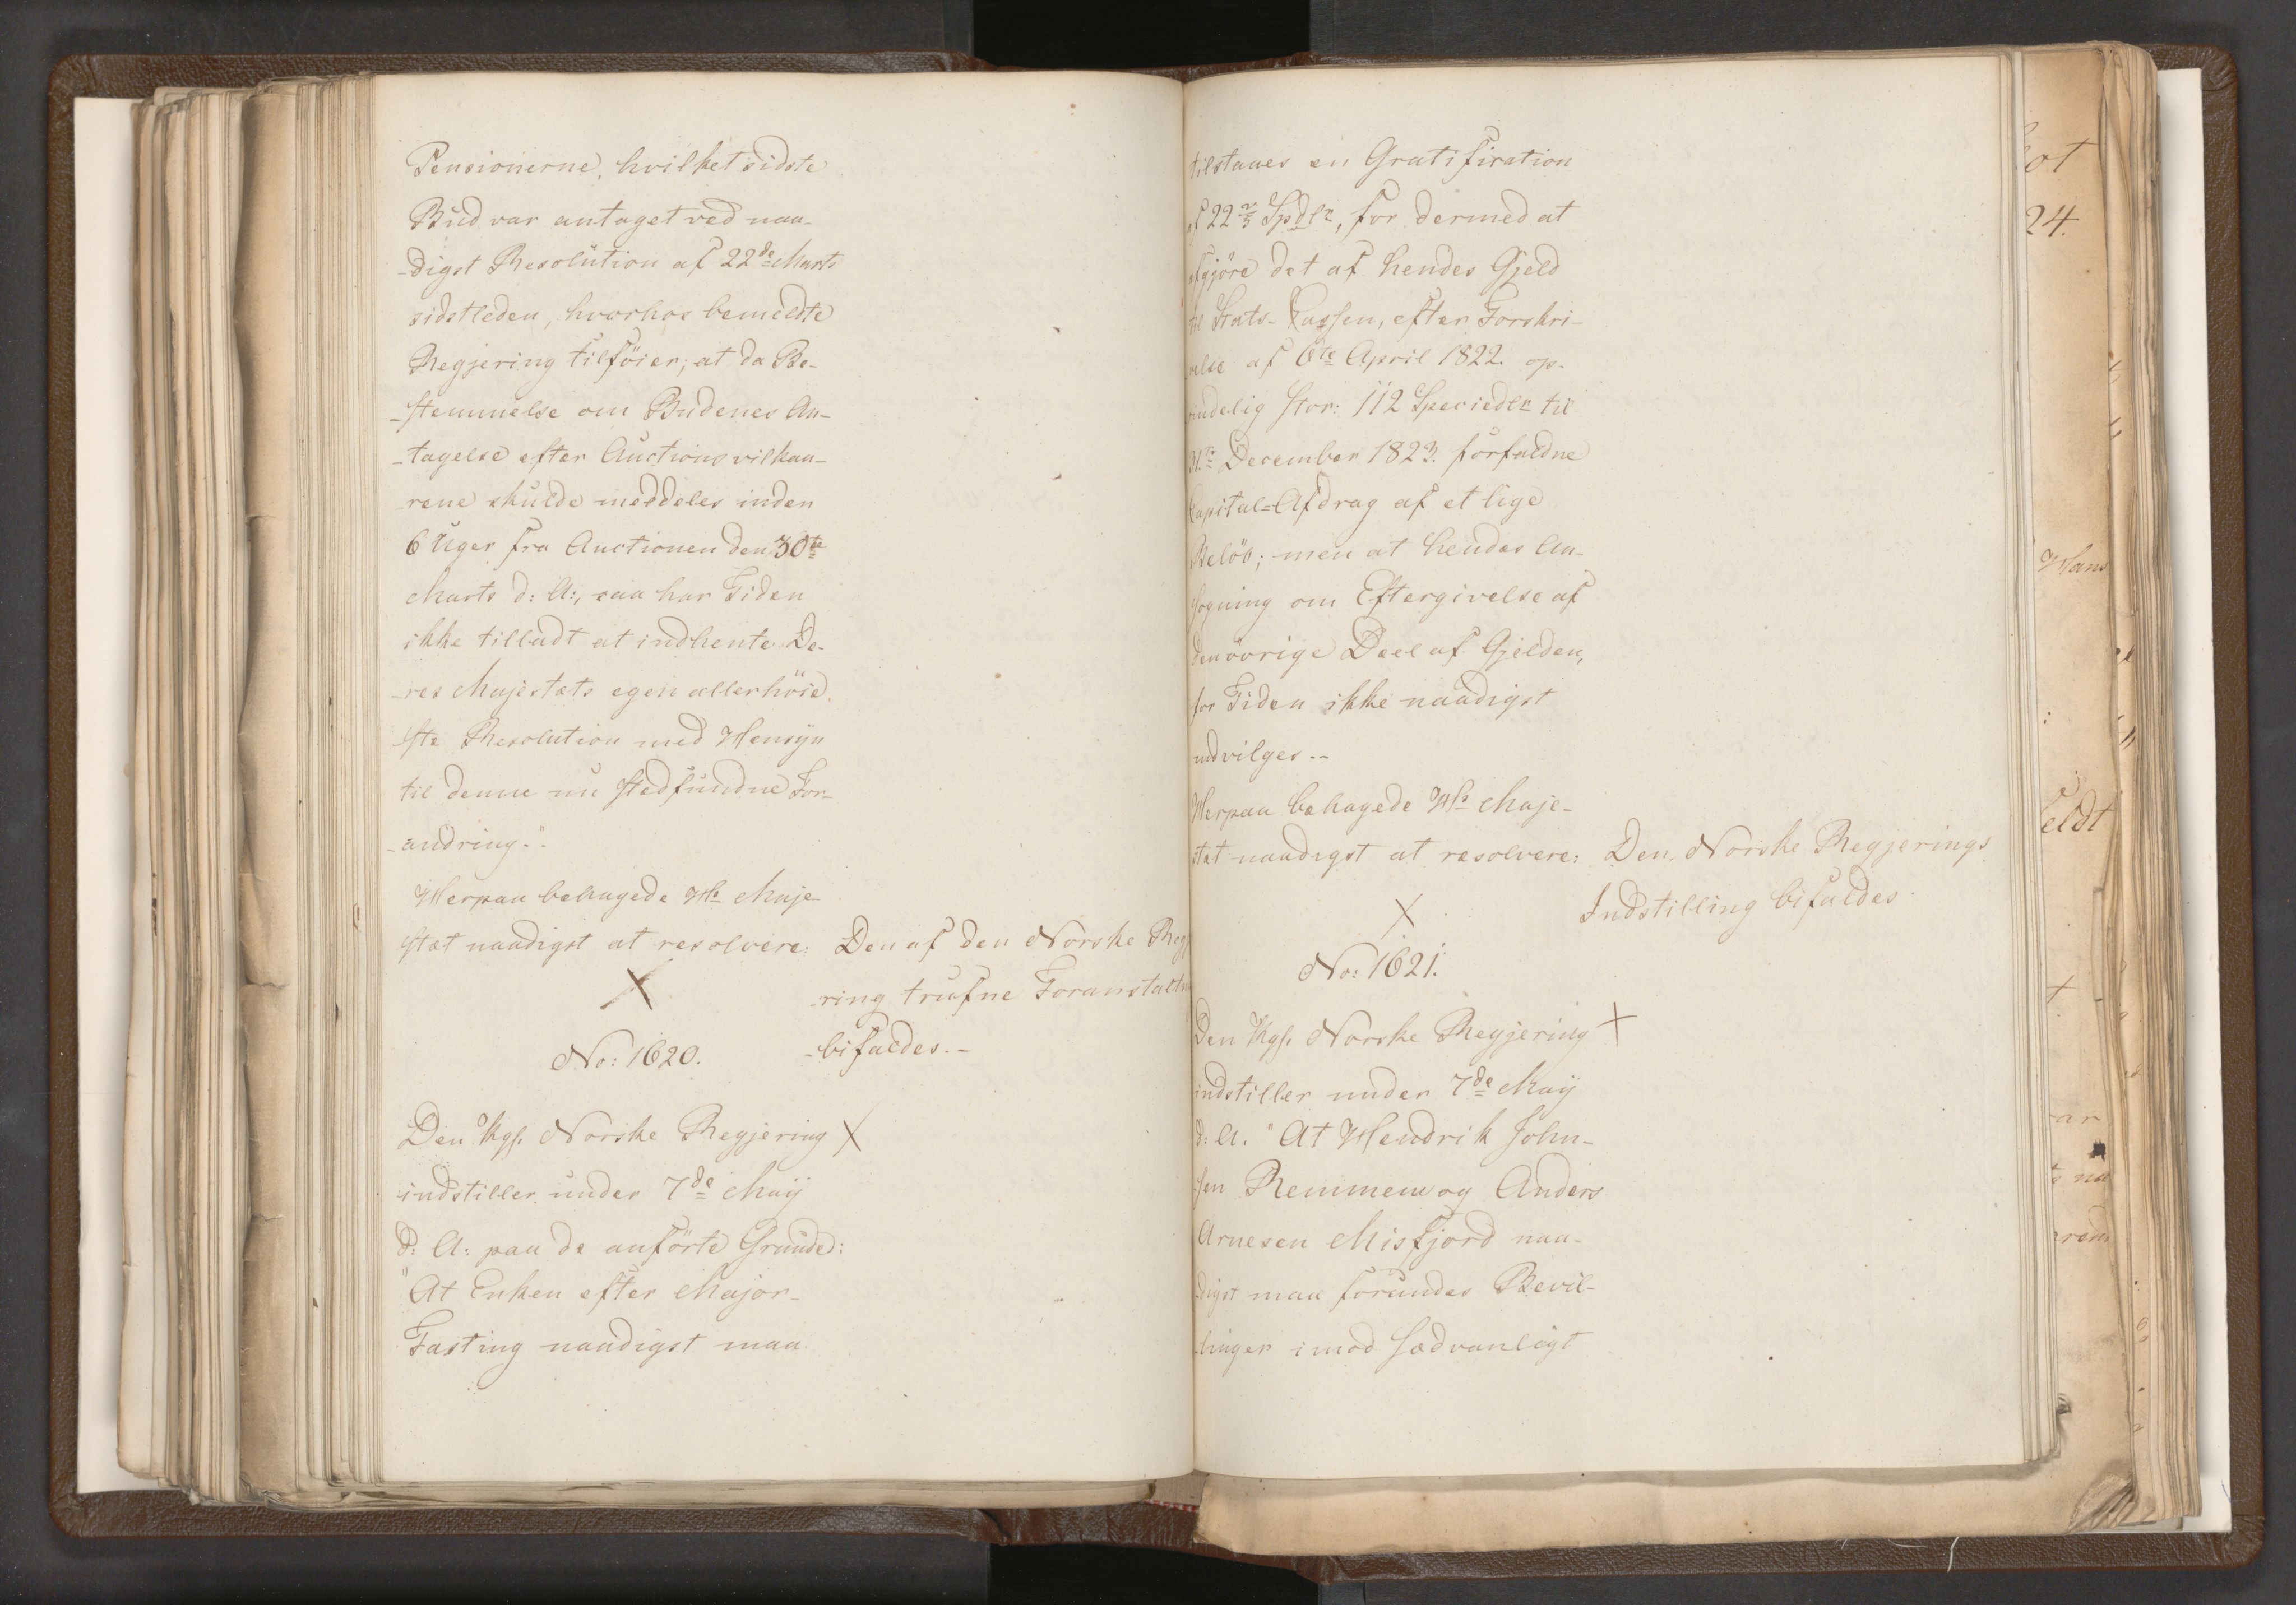 Pensionerne, hvilket sidste
Bud var antaget ved naa-
-digst Resolution af 22de Marts
sidstleden, hvorhos bemeldte
Regjering tilföier, at da Be-
-stemmelse om Budenes An-
-tagelse efter Auctionsvilkaa-
rene skulde meddeles inden
6 Uger fra Auctionen den 30te
Marts d: A:, saa har Tiden
ikke tilladt at indhente De-
-res Majestæts egen allerhöie
ste Resolution med Hensyn
til denne nu stedfundne For-
-andring."
Herpaa behagede Hs Maje
stæt naadigst at resolvere: Den af den Norske Regj
-ring trufne Foranstaltn
-bifaldes.-
No: 1620.
Den Kgl. Norske Regjering X
indstiller under 7de Maij
d: A: paa de anförte Grunde:
"At Enken efter Major
Fasting naadigst maa
tilstaaes en Gratification
af 22 2/5 Spdlr, for dermed at
afgjöre det af hendes Gjeld
til Stats-Cassen, efter Forskri-
velse af 6te April 1822. op-
rindelig stor: 112 Speciedlr til
31te December 1823. forfaldne
Capital=Afdrag af et lige
Belöb; men at hendes An-
sögning om Eftergivelse af
den övrige Deel af Gjelden,
for Tiden ikke naadigst
indvilges.-
Herpaa behagede Hs Maje-
stæt naadigst at resolvere: Den Norske Regjerings
Indstilling bifaldes.
X
No: 1621.
Den Kgl. Norske Regjering X
indstiller under 7de Maij
d: A. "At Hendrik John-
sen Remmem og Anders
Arnesen Misfjord naa-
digst maa forundes Bevil-
linger imod sædvanligt